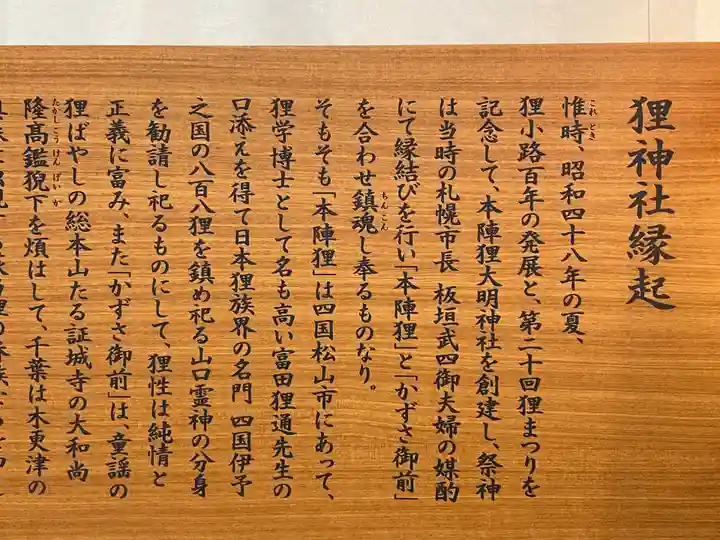 狸神社縁起
惟時、昭和四十八年の夏、
これ とき
狸小路百年の発展と、第二十回狸まつりを
記念して、本陣狸大明神社を創建し、祭神
は当時の札幌市長 板垣武四御夫婦の媒酌
にて縁結びを行い「本陣狸」と「かずさ御前」
を合わせ鎮魂し奉るものなり。
ちんこん
そもそも「本陣狸」は四国松山市にあって、
狸学博士として名も高い富田狸通先生の
口添えを得て日本狸族界の名門 四国伊予
之国の八百八狸を鎮め祀る山口霊神の分身
を勧請し祀るものにして、狸性は純情と
正義に富み、また「かずさ御前」は、童謡の
狸ばやしの総本山たる証城寺の大和尚
隆髙鑑猊下を煩はして、千葉は木更津の
たかしこうけんげいか